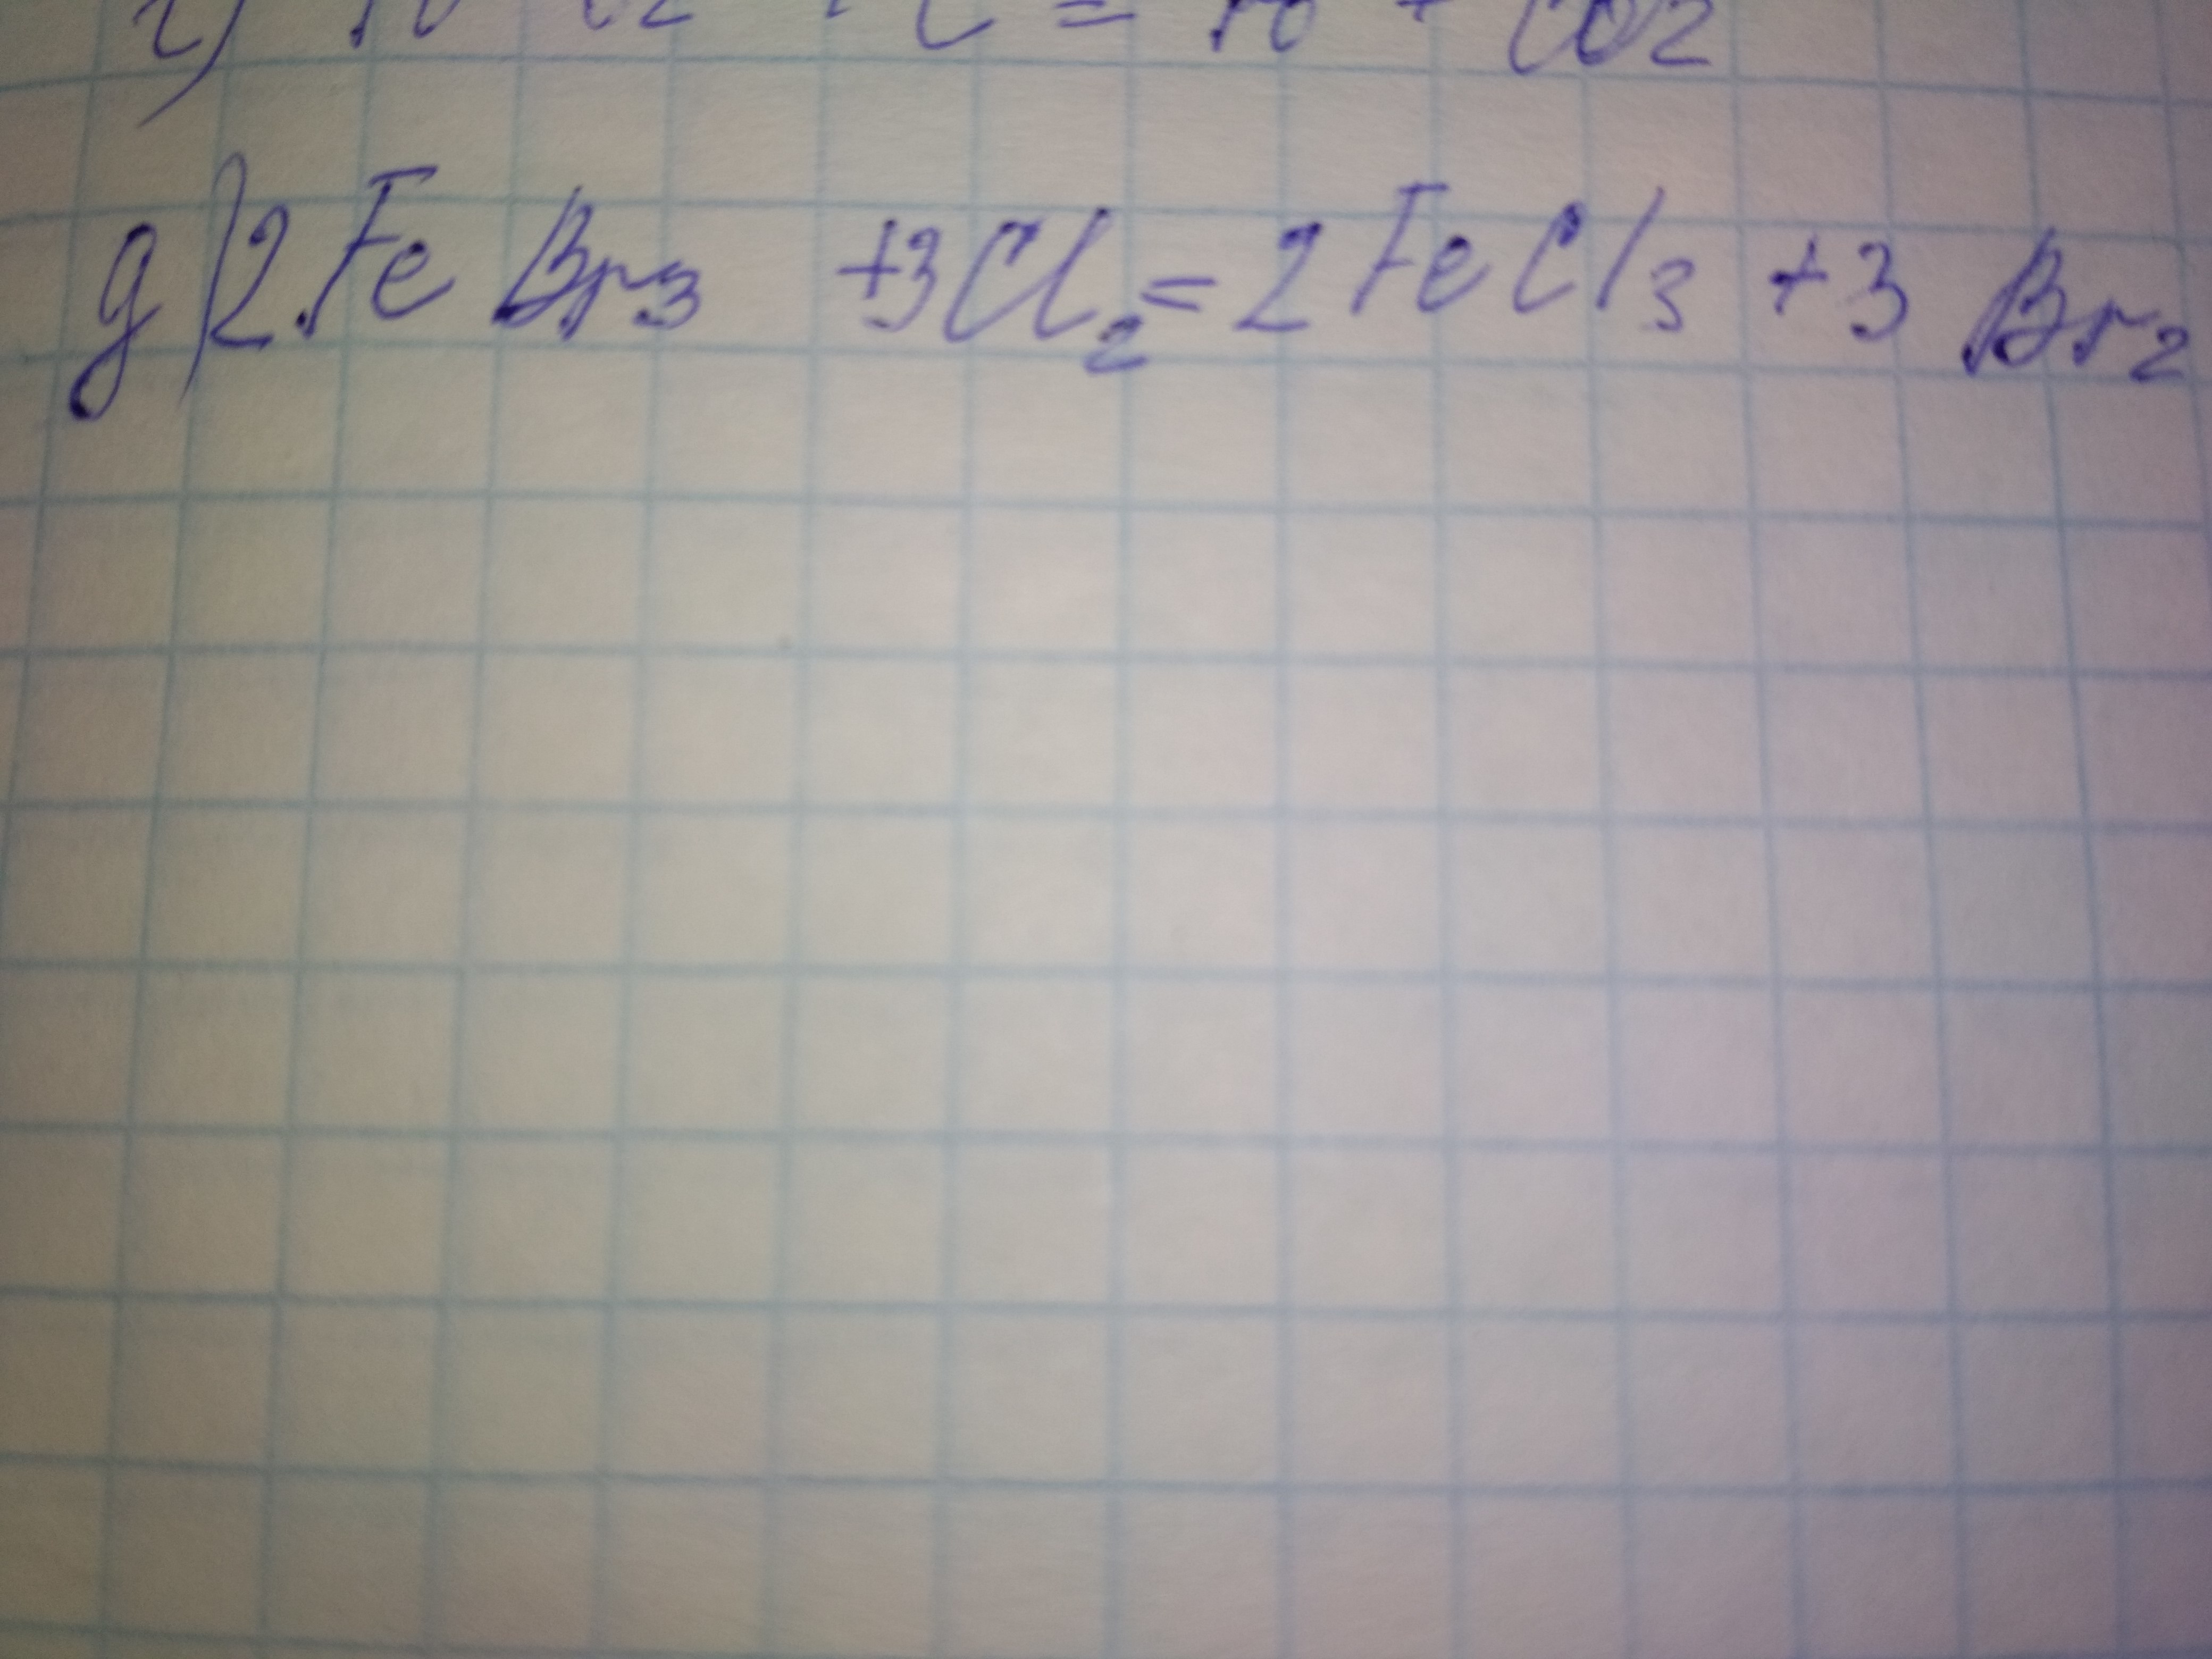 CO2
g) 2FeBr3 +3Cl2= 2FeCl3 +3 Br2